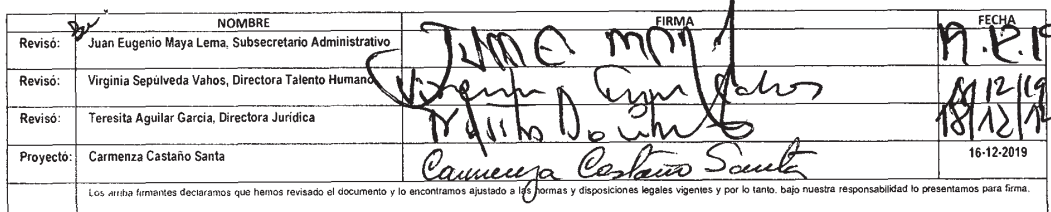 NOMBRE FIRMA FECHA
Revisó: Juan Eugenio Maya Lema, Subsecretario Administrativo
Revisó: Virginia Sepúlveda Vahos, Directora Talento Humano
Revisó: Teresita Aguilar García, Directora Jurídica 18/12/19
Proyectó: Carmenza Castaño Santa Carmenza Castaño Santa 16-12-2019
Los arriba firmantes declaramos que hemos revisado el documento y lo encontramos ajustado a las normas y disposiciones legales vigentes y por lo tanto, bajo nuestra responsabilidad lo presentamos para firma.